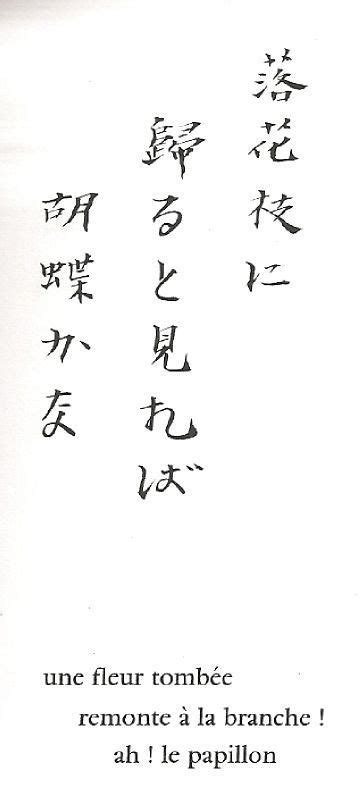 落花枝に
歸ると見れば
胡蝶かな
une fleur tombée
remonte à la branche !
ah ! le papillon